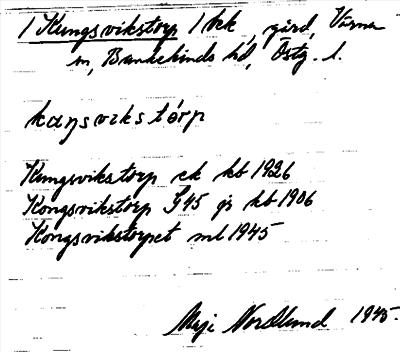 1 Kungsvikstorp 1 kk, gård, Värna
sn, Bankekinds hd, Östg. l.
kaŋsvɪkstórp
Kungsvikstorp ek kb 1926
Kongsvikstorp G45 gs kb 1906
Kongsvikstorpet ml 1945
Maj Nordlund 1945.